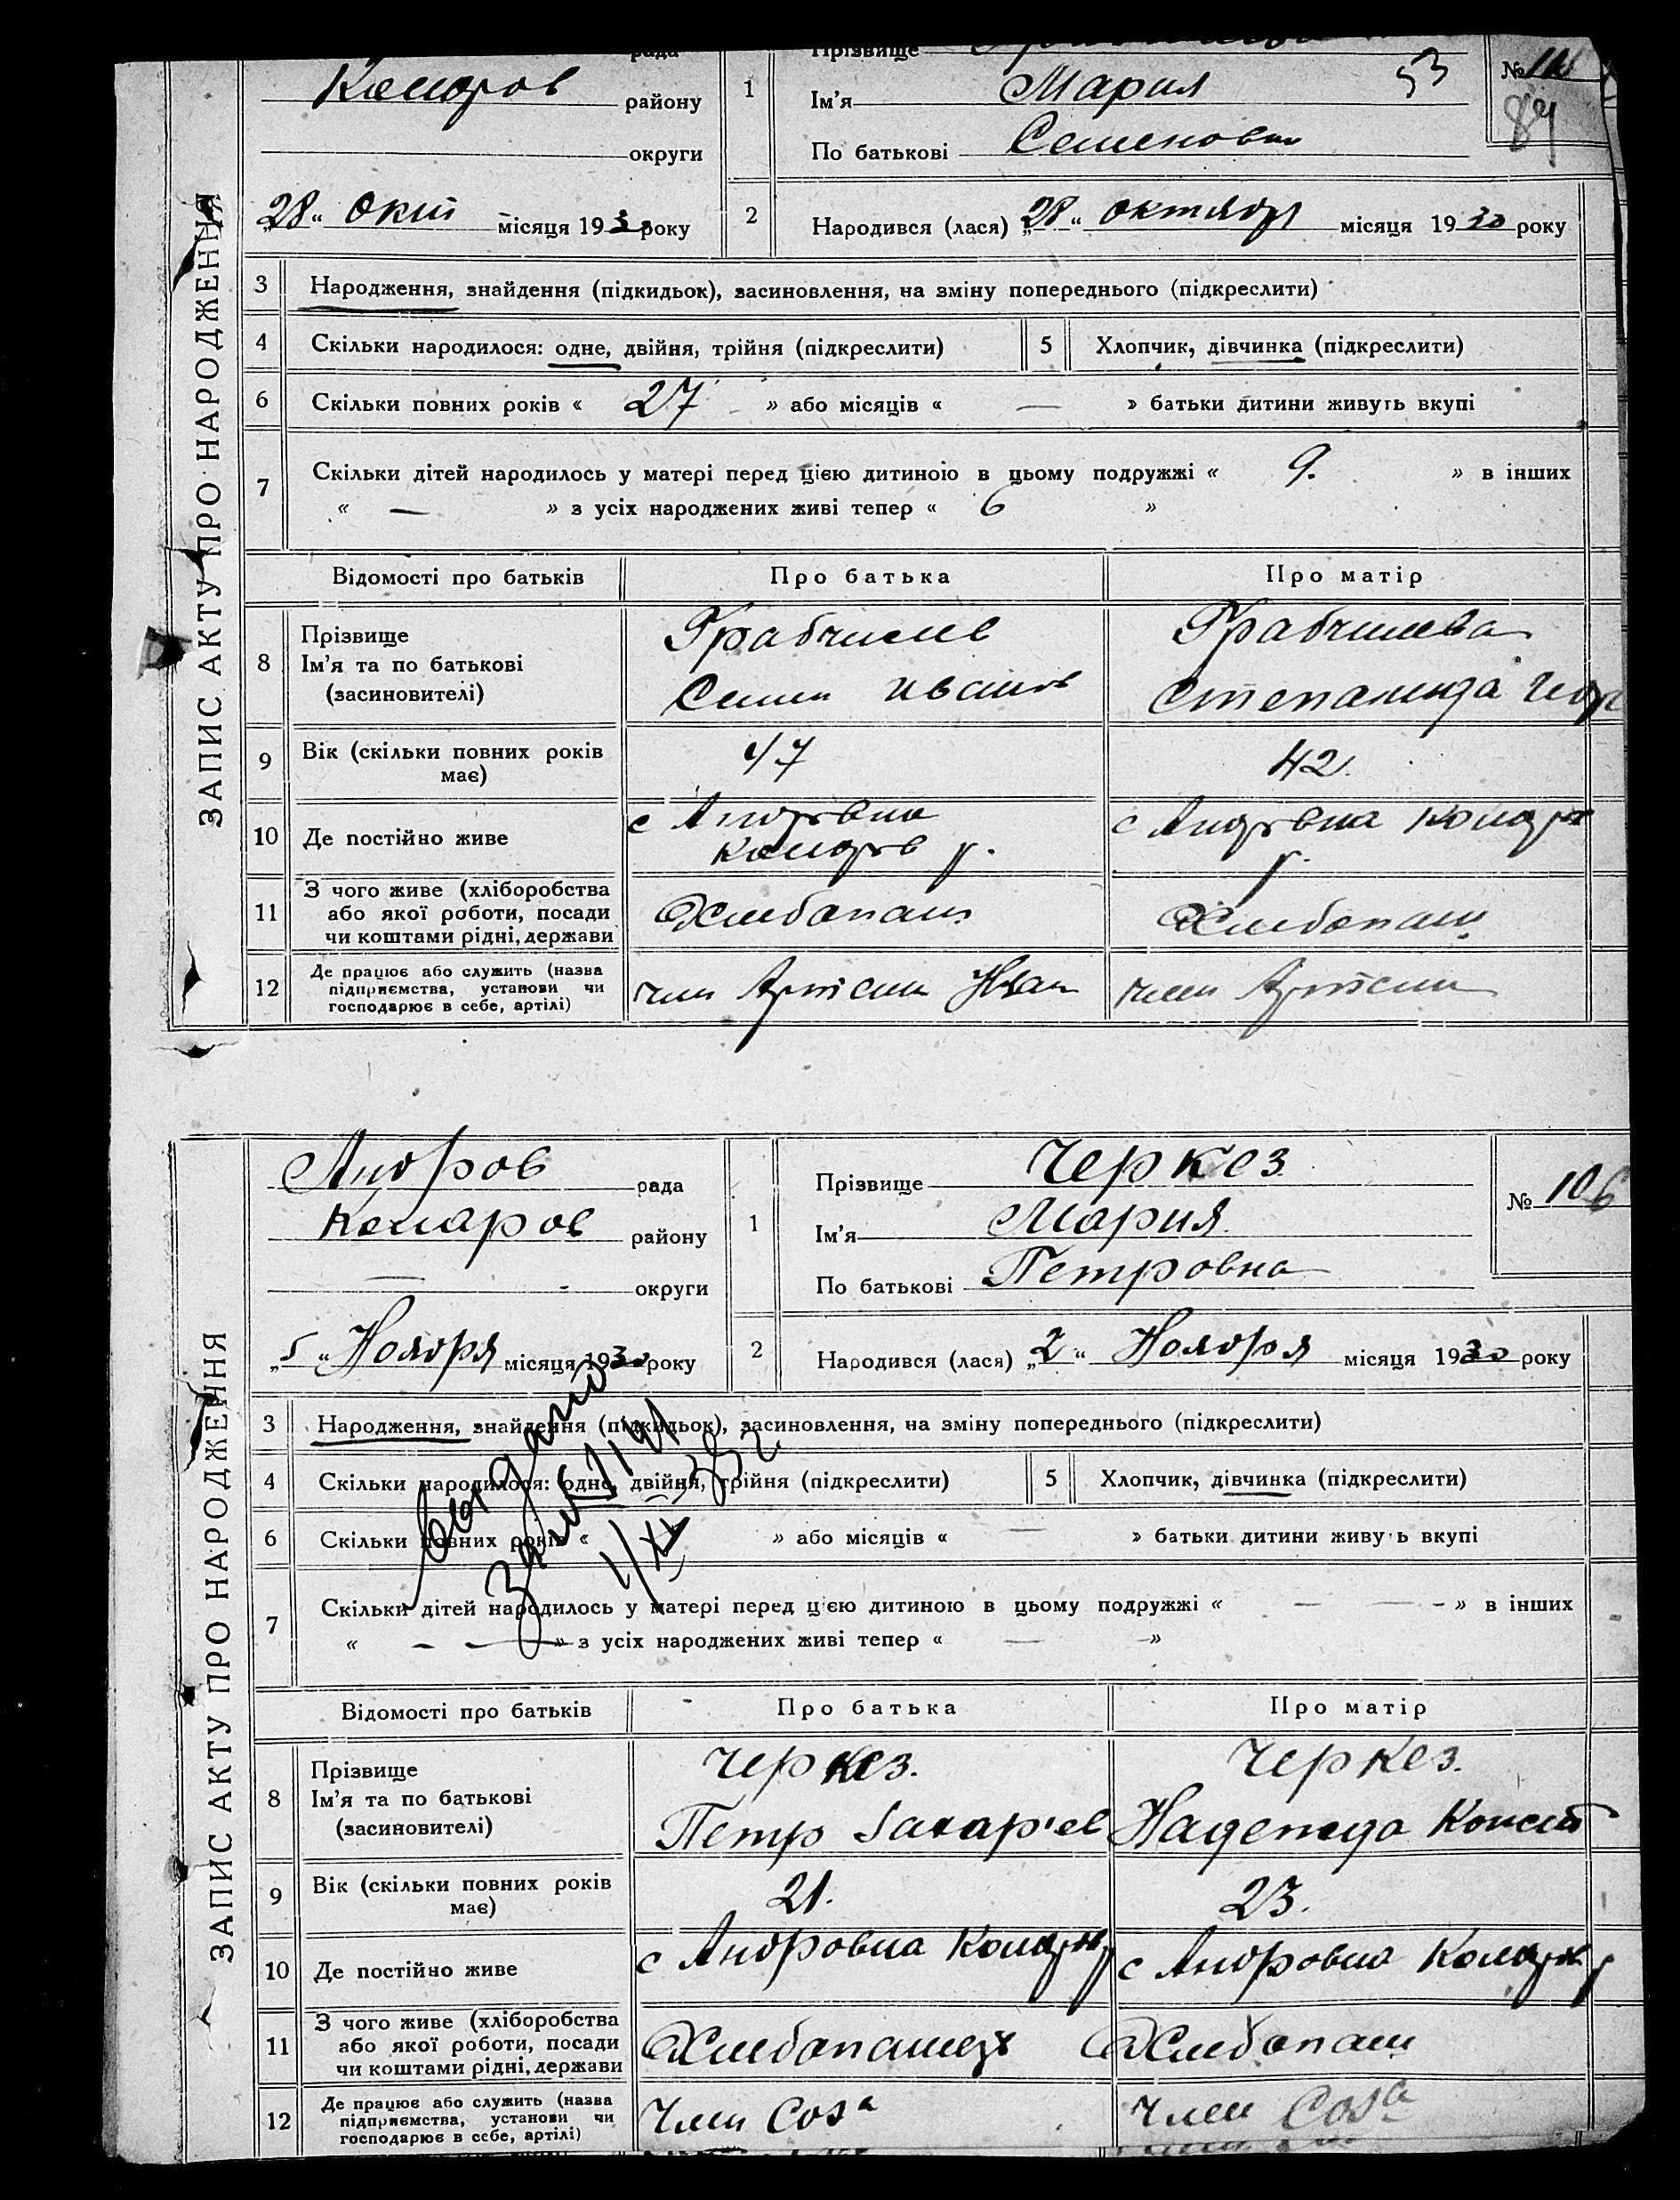 рада
Прізвище
Комаров району
1
Ім'я Мария
53
№
84
округи
По батькові Семеновна
„28“ Окт місяця 1930 року
2
Народився (лася) „28“ октября місяця 1930 року
ЗАПИС АКТУ ПРО НАРОДЖЕННЯ
3 Народження, знайдення (підкидьок), засиновлення, на зміну попереднього (підкреслити)
4 Скільки народилося: одне, двійня, трійня (підкреслити) 5 Хлопчик, дівчинка (підкреслити)
6 Скільки повних років « 27 » або місяців « — » батьки дитини живуть вкупі
7 Скільки дітей народилось у матері перед цією дитиною в цьому подружжі « 9. » в інших
« — » з усіх народжених живі тепер « 6 »
Відомості про батьків Про батька Про матір
8 Прізвище
Ім'я та по батькові
(засиновителі)
Семен Иванов
Степанида Геор
9 Вік (скільки повних років має) 47 42.
10 Де постійно живе
с Андровка
Комаров р.
с Андровка Комаров
р.
11 З чого живе (хліборобства
або якої роботи, посади
чи коштами рідні, держави
Хлебопаш
Хлебопаш
12 Де працює або служить (назва
підприємства, установи чи
господарює в себе, артілі)
член Артели
член Артели
Андров рада
Прізвище Черкез
№ 106
Комаров району
1
Ім'я Мария
— округи
По батькові Петровна
„5“ Ноября місяця 1930 року
2
Народився (лася) „2“ Ноября місяця 1930 року
ЗАПИС АКТУ ПРО НАРОДЖЕННЯ
3 Народження, знайдення (підкидьок), засиновлення, на зміну попереднього (підкреслити)
4 Скільки народилося: одне, двійня, трійня (підкреслити) 5 Хлопчик, дівчинка (підкреслити)
6 Скільки повних років « » або місяців « — » батьки дитини живуть вкупі
7 Скільки дітей народилось у матері перед цією дитиною в цьому подружжі « — » в інших
« — » з усіх народжених живі тепер « — »
Відомості про батьків Про батька Про матір
8 Прізвище
Ім'я та по батькові
(засиновителі)
Черкез.
Петр Захар'ев
Черкез.
Надежда Конст
9 Вік (скільки повних років має) 21. 23.
10 Де постійно живе
с Андровка Комаров р
с Андровка Комаров р
11 З чого живе (хліборобства
або якої роботи, посади
чи коштами рідні, держави
Хлебопашец
Хлебопаш
12 Де працює або служить (назва
підприємства, установи чи
господарює в себе, артілі)
Член Соза
Член Соза